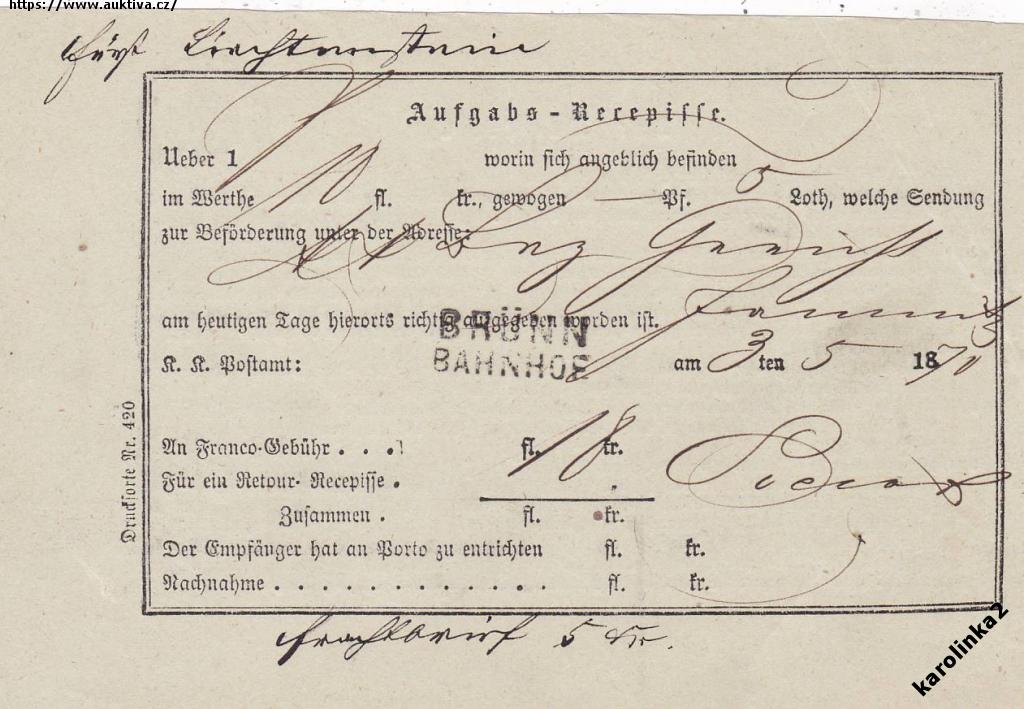 https://www.auktiva.cz/
Fürst Liechtenstein
Aufgabs-Recepisse.
Ueber 1 worin sich angeblich befinden
im Werthe 10 fl. kr., gewogen — Pf. 5 Loth, welche Sendung
zur Beförderung unter der Adresse: Bez Gericht
am heutigen Tage hierorts richtig aufgegeben worden ist.
BRÜNN
BAHNHOF
K. K. Postamt: am 3 ten 5 1870
An Franco-Gebühr . . . fl. 18 kr.
Für ein Retour-Recepisse .
Zusammen . fl. kr.
Der Empfänger hat an Porto zu entrichten fl. kr.
Nachnahme . . . . . . . . . . . . fl. kr.
Drucksorte Nr. 420
Frachtbrief 5 Kr.
karolinka2